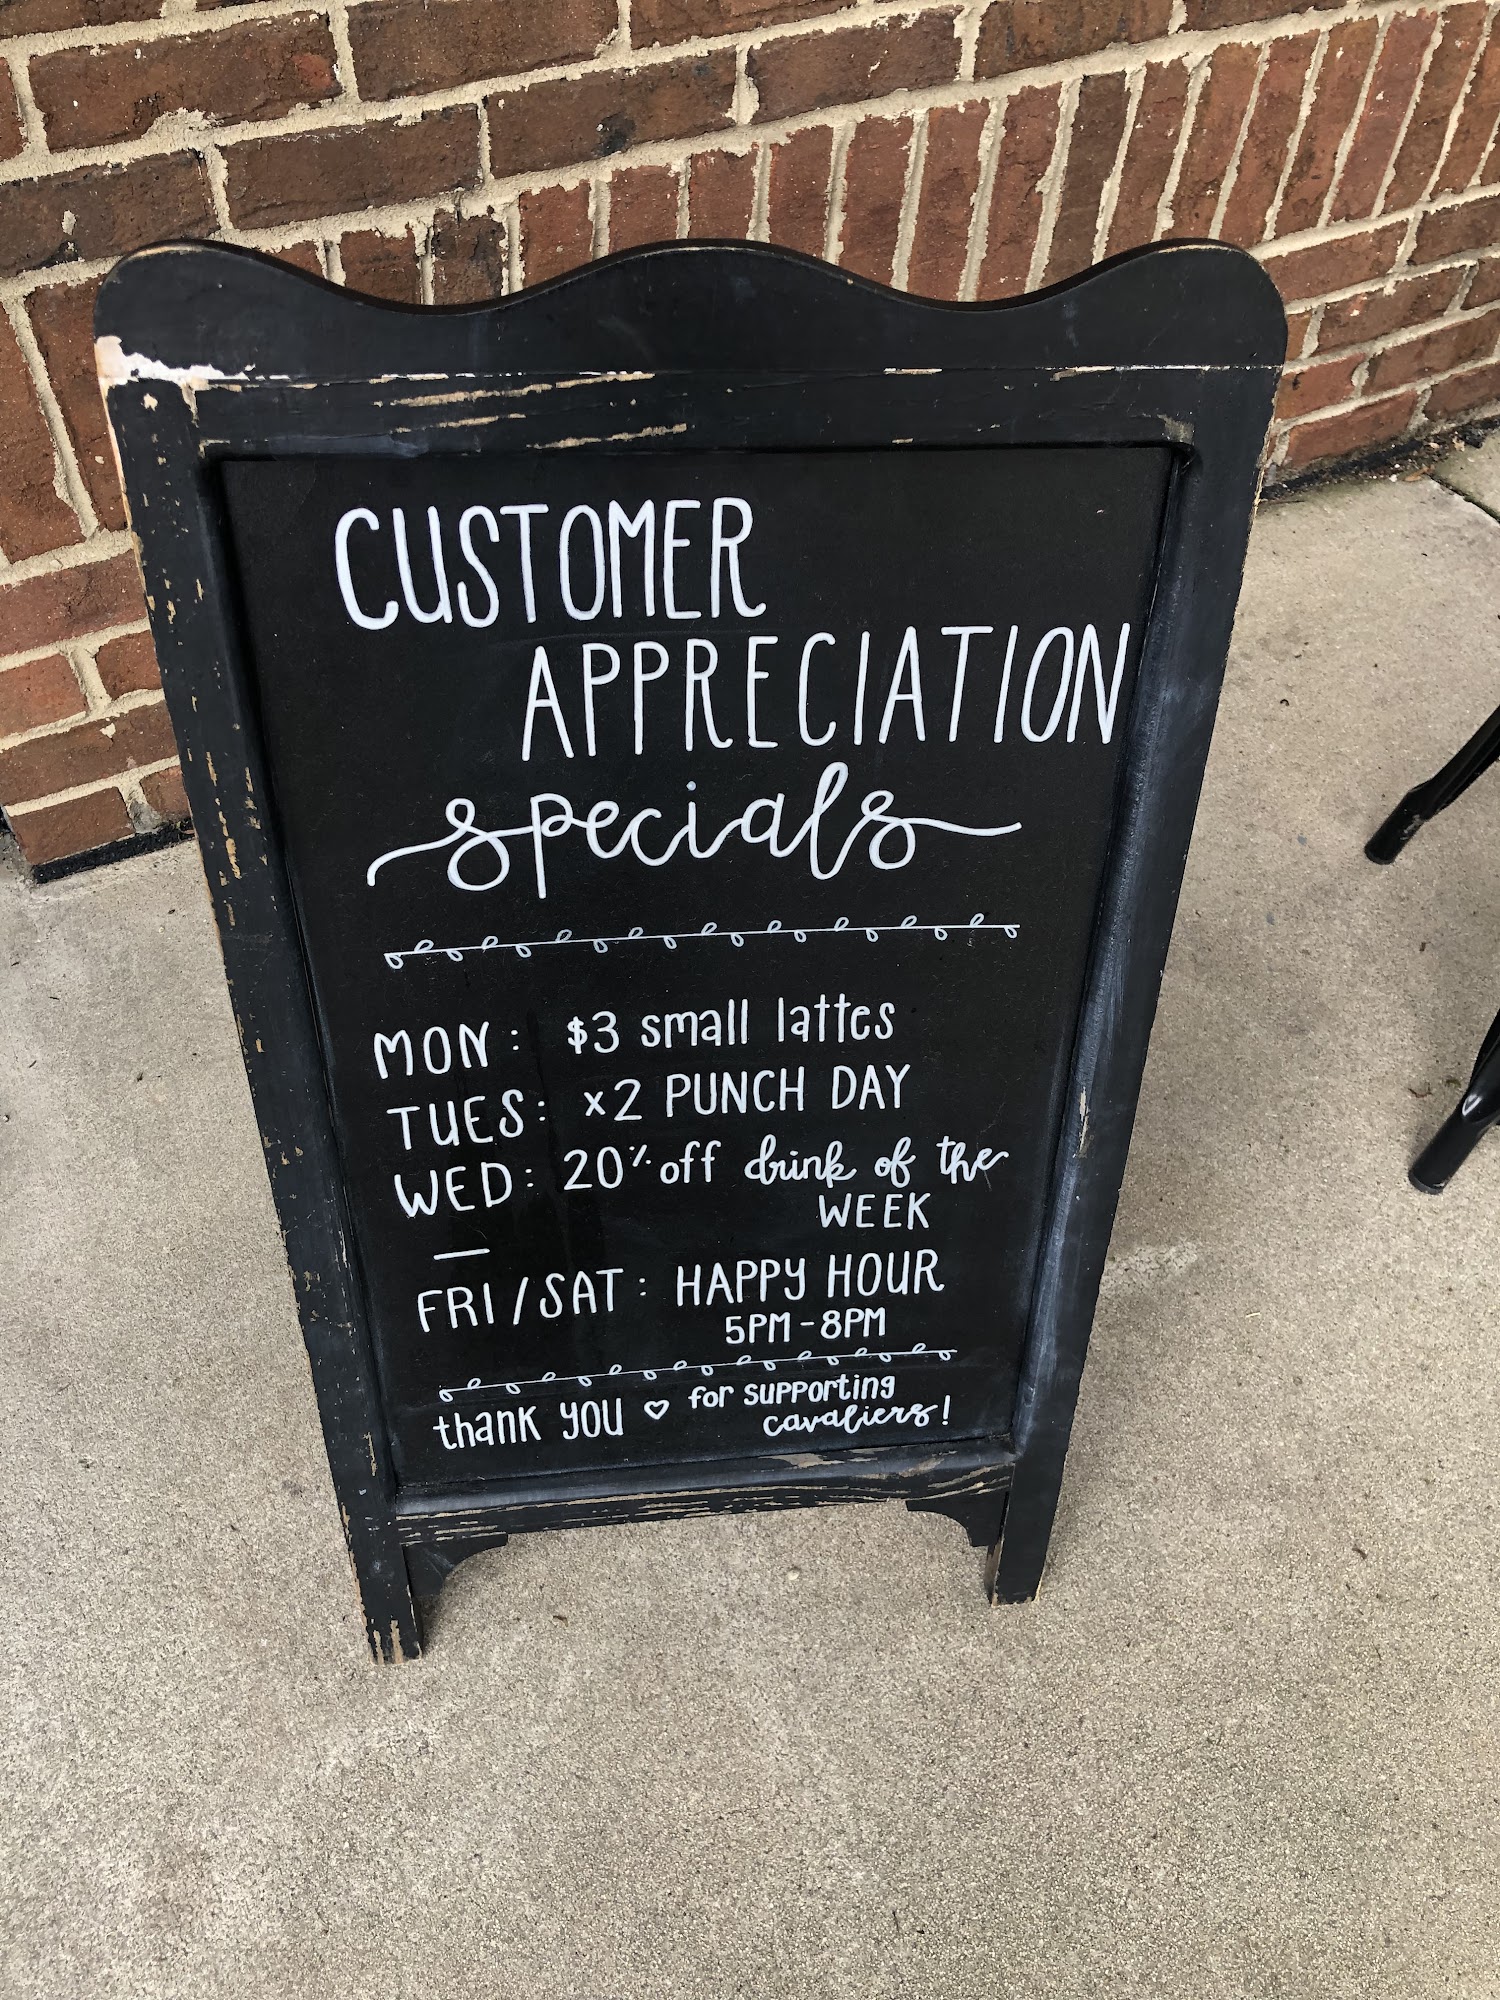 CUSTOMER
APPRECIATION
specials
MON: $3 small lattes
TUES: x2 PUNCH DAY
WED: 20% off drink of the
WEEK
—
FRI/SAT: HAPPY HOUR
5PM-8PM
thank you ♡ for supporting
cavaliers!